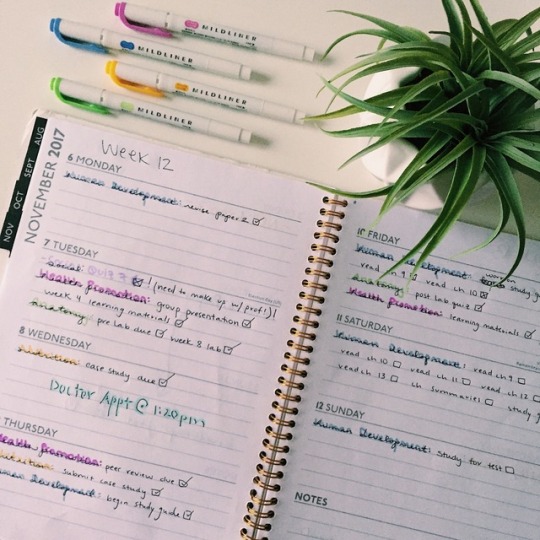 MILDLINER
MILDLINER
MILDLINER
MILDLINER
NOV OCT SEPT AUG
NOVEMBER 2017
Week 12
6 MONDAY
Human Development: revise paper 2
7 TUESDAY
Social: Quiz 7 ! (need to make up w/ prof!)!
Health Promotion: group presentation
week 4 learning materials
Anatomy: pre lab due week 8 lab
8 WEDNESDAY
Nutrition: case study due
Doctor Appt @ 1:20pm
THURSDAY
Health Promotion: peer review due
Nutrition: submit case study
Human Development: begin study guide
10 FRIDAY
Human Development: study
read ch. 9 read ch. 10
Anatomy: post lab quiz
Health Promotion: learning materials
11 SATURDAY
Human Development: read ch 9
read ch. 10 read ch. 11 read ch. 12
read ch. 13 ch summaries study
12 SUNDAY
Human Development: study for test
NOTES